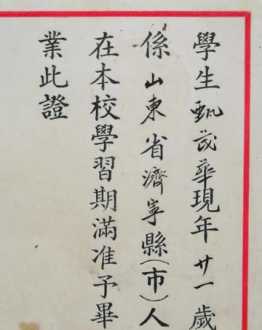 學生甄茂華現年廿一歲
係山東省濟寧縣(市)人
在本校學習期滿准予畢
業此證